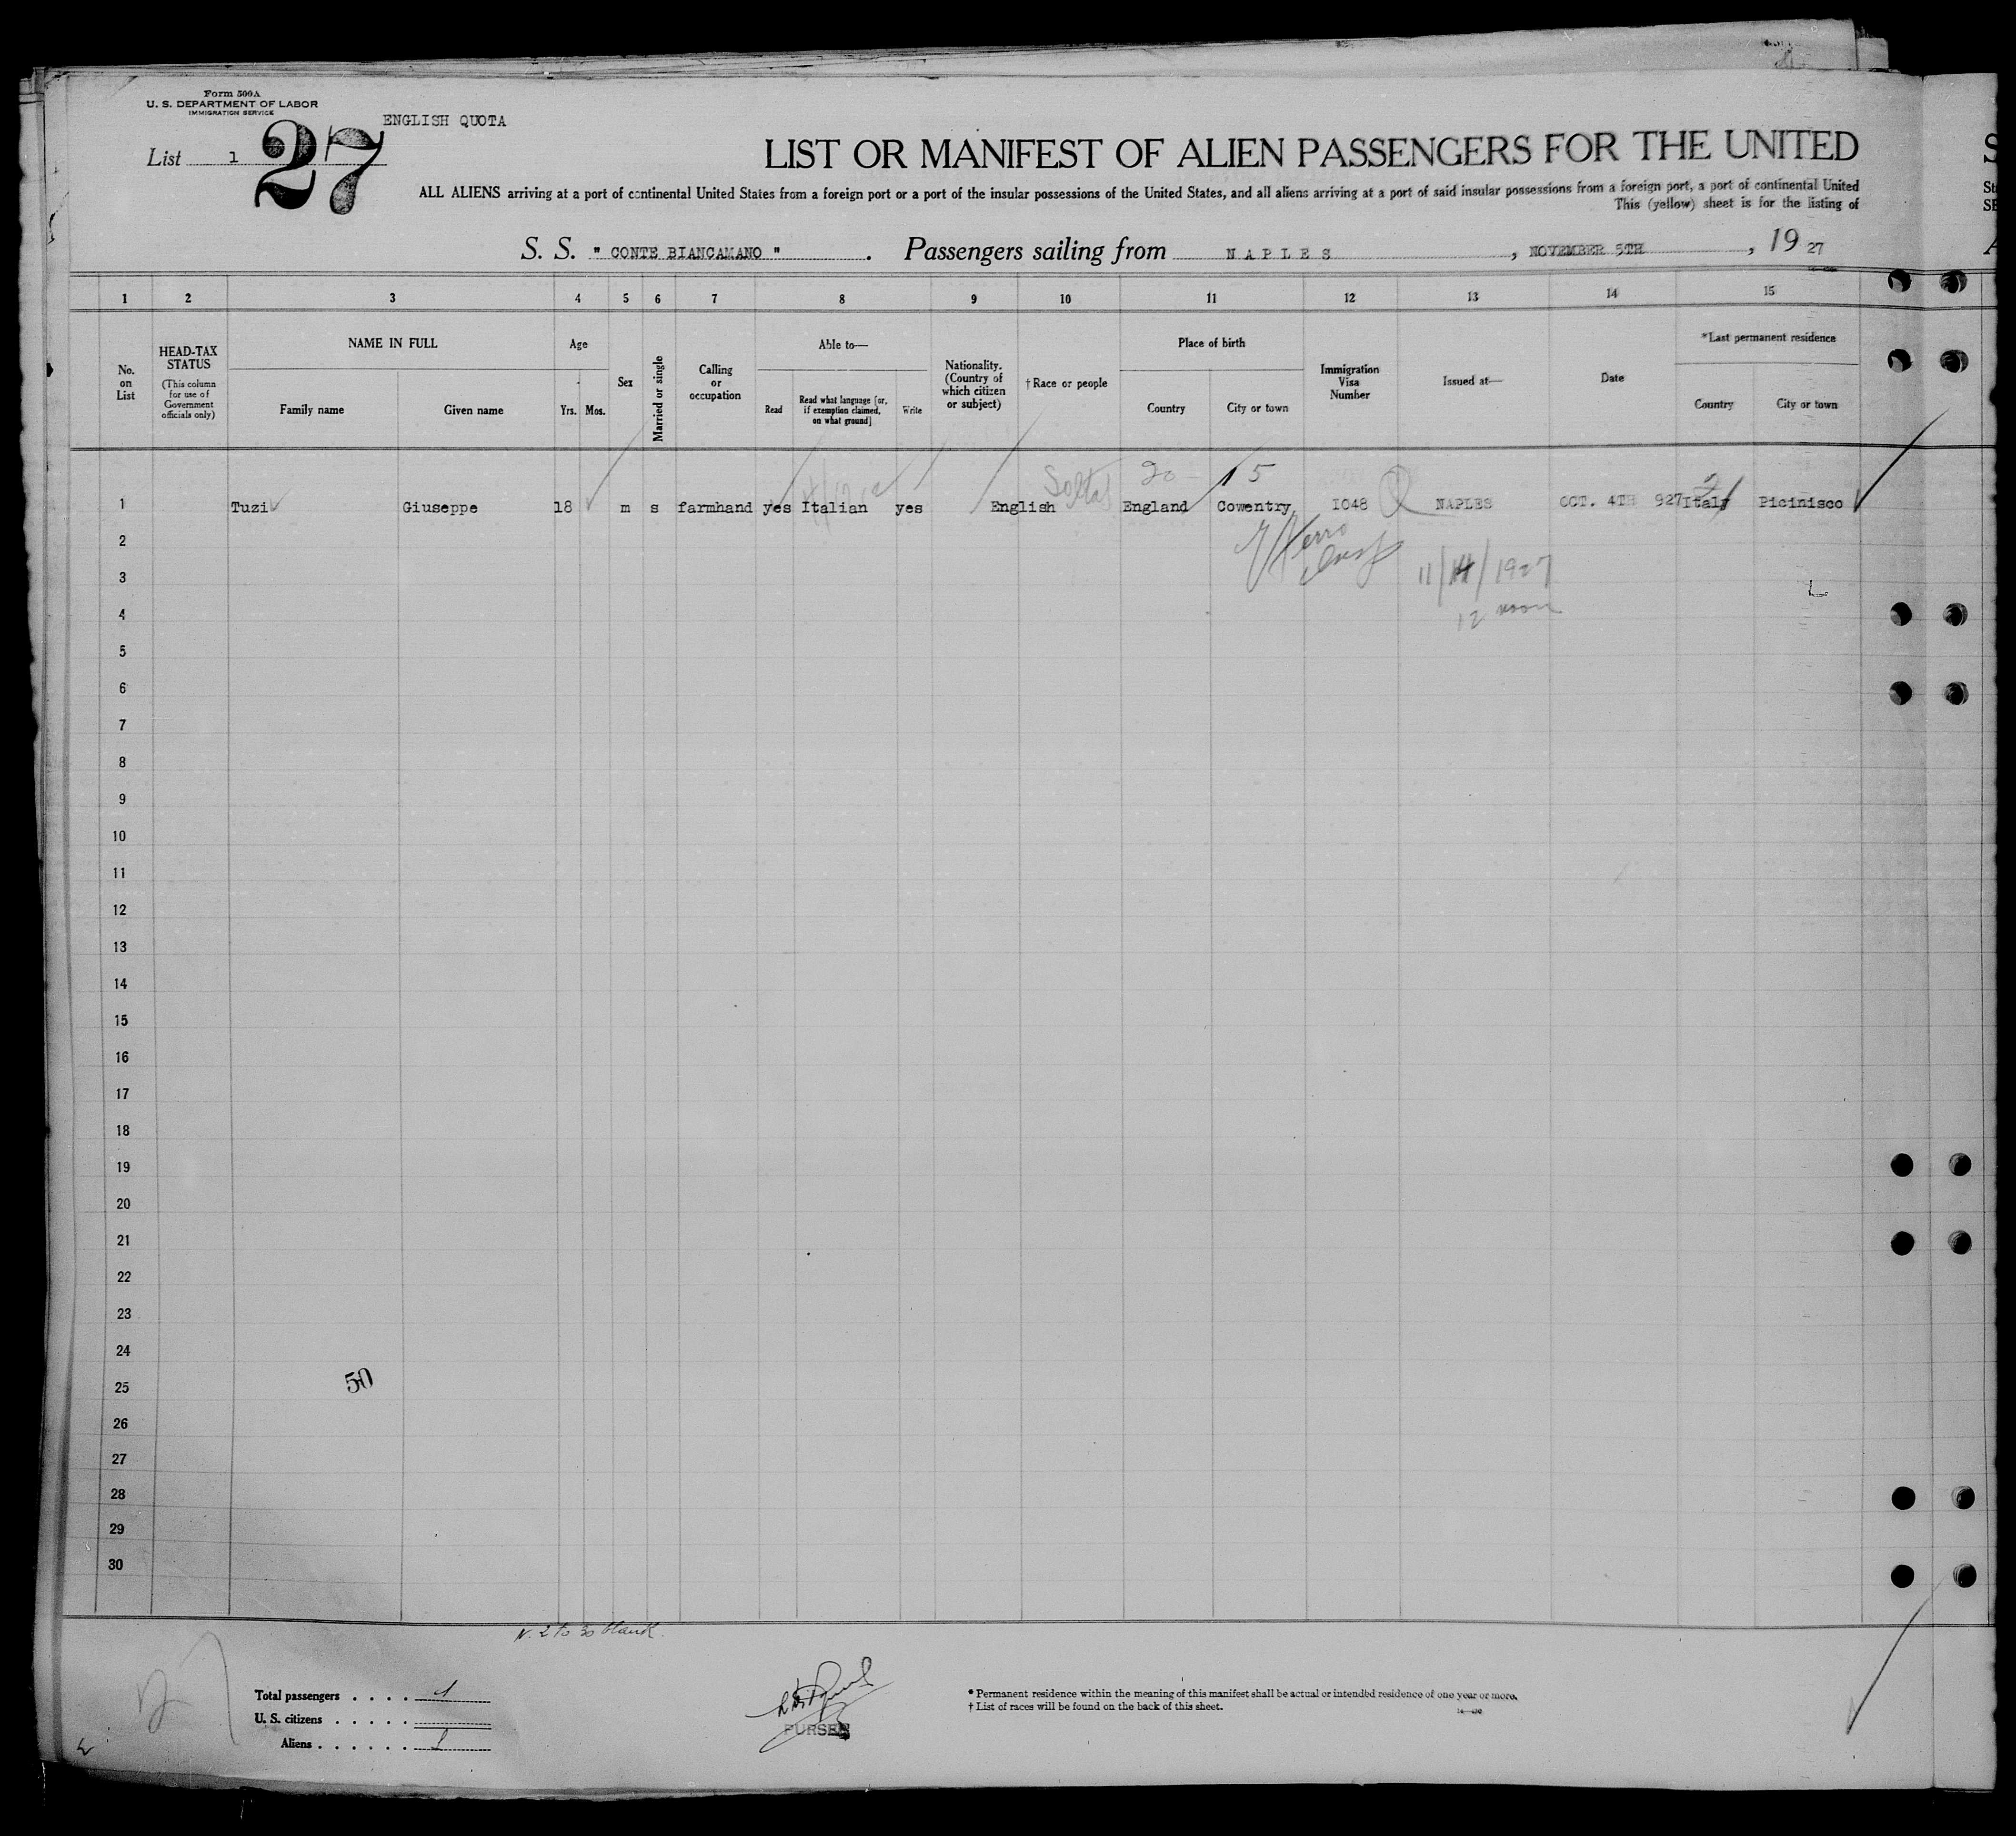 Form 500A
U. S. DEPARTMENT OF LABOR
IMMIGRATION SERVICE
ENGLISH QUOTA
List 1
27
LIST OR MANIFEST OF ALIEN PASSENGERS FOR THE UNITED
ALL ALIENS arriving at a port of continental United States from a foreign port or a port of the insular possessions of the United States, and all aliens arriving at a port of said insular possessions from a foreign port, a port of continental United
This (yellow) sheet is for the listing of
S. S. " CONTE BIANCAMANO ". Passengers sailing from NAPLES, NOVEMBER 5TH, 1927
1 2 3 4 5 6 7 8 9 10 11 12 13 14 15
No. on List
HEAD-TAX STATUS
(This column for use of Government officials only)
NAME IN FULL
Family name Given name
Age
Yrs. Mos.
Sex
Married or single
Calling or occupation
Able to—
Read
Read what language [or, if exemption claimed, on what ground]
Write
Nationality. (Country of which citizen or subject)
† Race or people
Place of birth
Country City or town
Immigration Visa Number
Issued at—
Date
*Last permanent residence
Country City or town
20 15
1 Tuzi Giuseppe 18 m s farmhand yes Italian yes English England Cowentry 1048 NAPLES OCT. 4TH 927 Italy Picinisco
2
11/14/1927
3
12 noon
4
5
6
7
8
9
10
11
12
13
14
15
16
17
18
19
20
21
22
23
24
50
25
26
27
28
29
30
N. 2 to 30 blank.
27
Total passengers . . . . 1
U. S. citizens . . . . .
Aliens . . . . . . 1
PURSER
* Permanent residence within the meaning of this manifest shall be actual or intended residence of one year or more.
† List of races will be found on the back of this sheet.